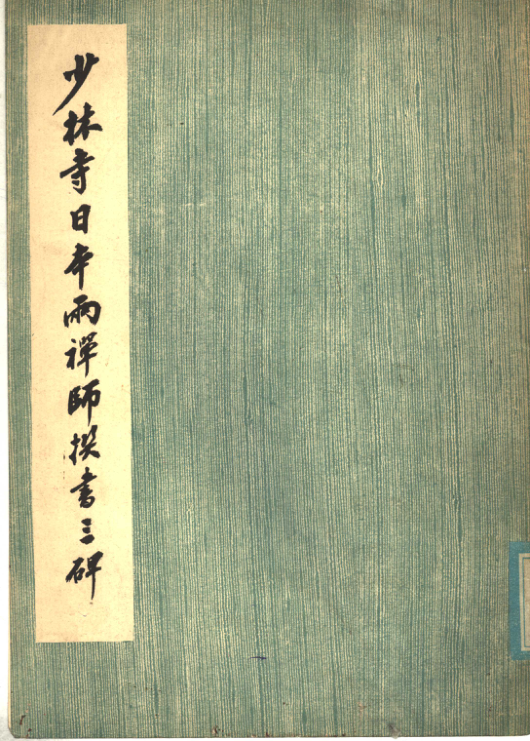 少林寺日本兩禪師撰書三碑